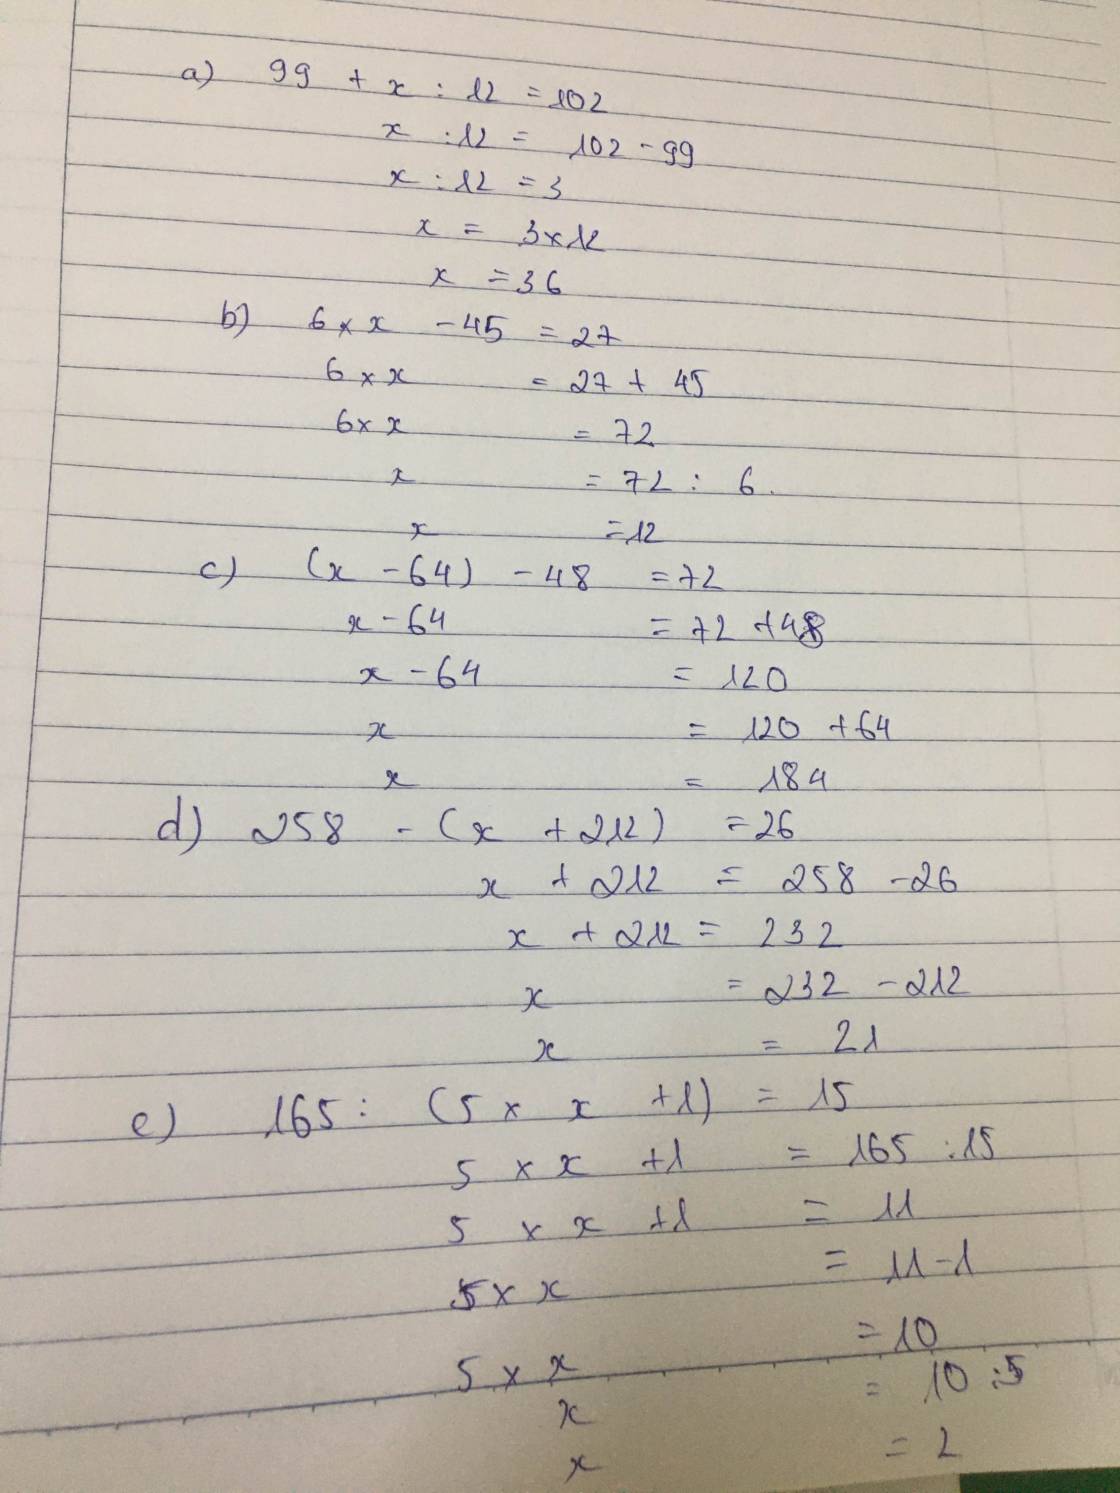 a) 99 + x : 12 = 102
x : 12 = 102 - 99
x : 12 = 3
x = 3 x 12
x = 36
b) 6 x x - 45 = 27
6 x x = 27 + 45
6 x x = 72
x = 72 : 6.
x = 12
c) (x - 64) - 48 = 72
x - 64 = 72 + 48
x - 64 = 120
x = 120 + 64
x = 184
d) 258 - (x + 212) = 26
x + 212 = 258 - 26
x + 212 = 232
x = 232 - 212
x = 21
e) 165 : (5 x x + 1) = 15
5 x x + 1 = 165 : 15
5 x x + 1 = 11
5 x x = 11 - 1
5 x x = 10
x = 10 : 5
x = 2